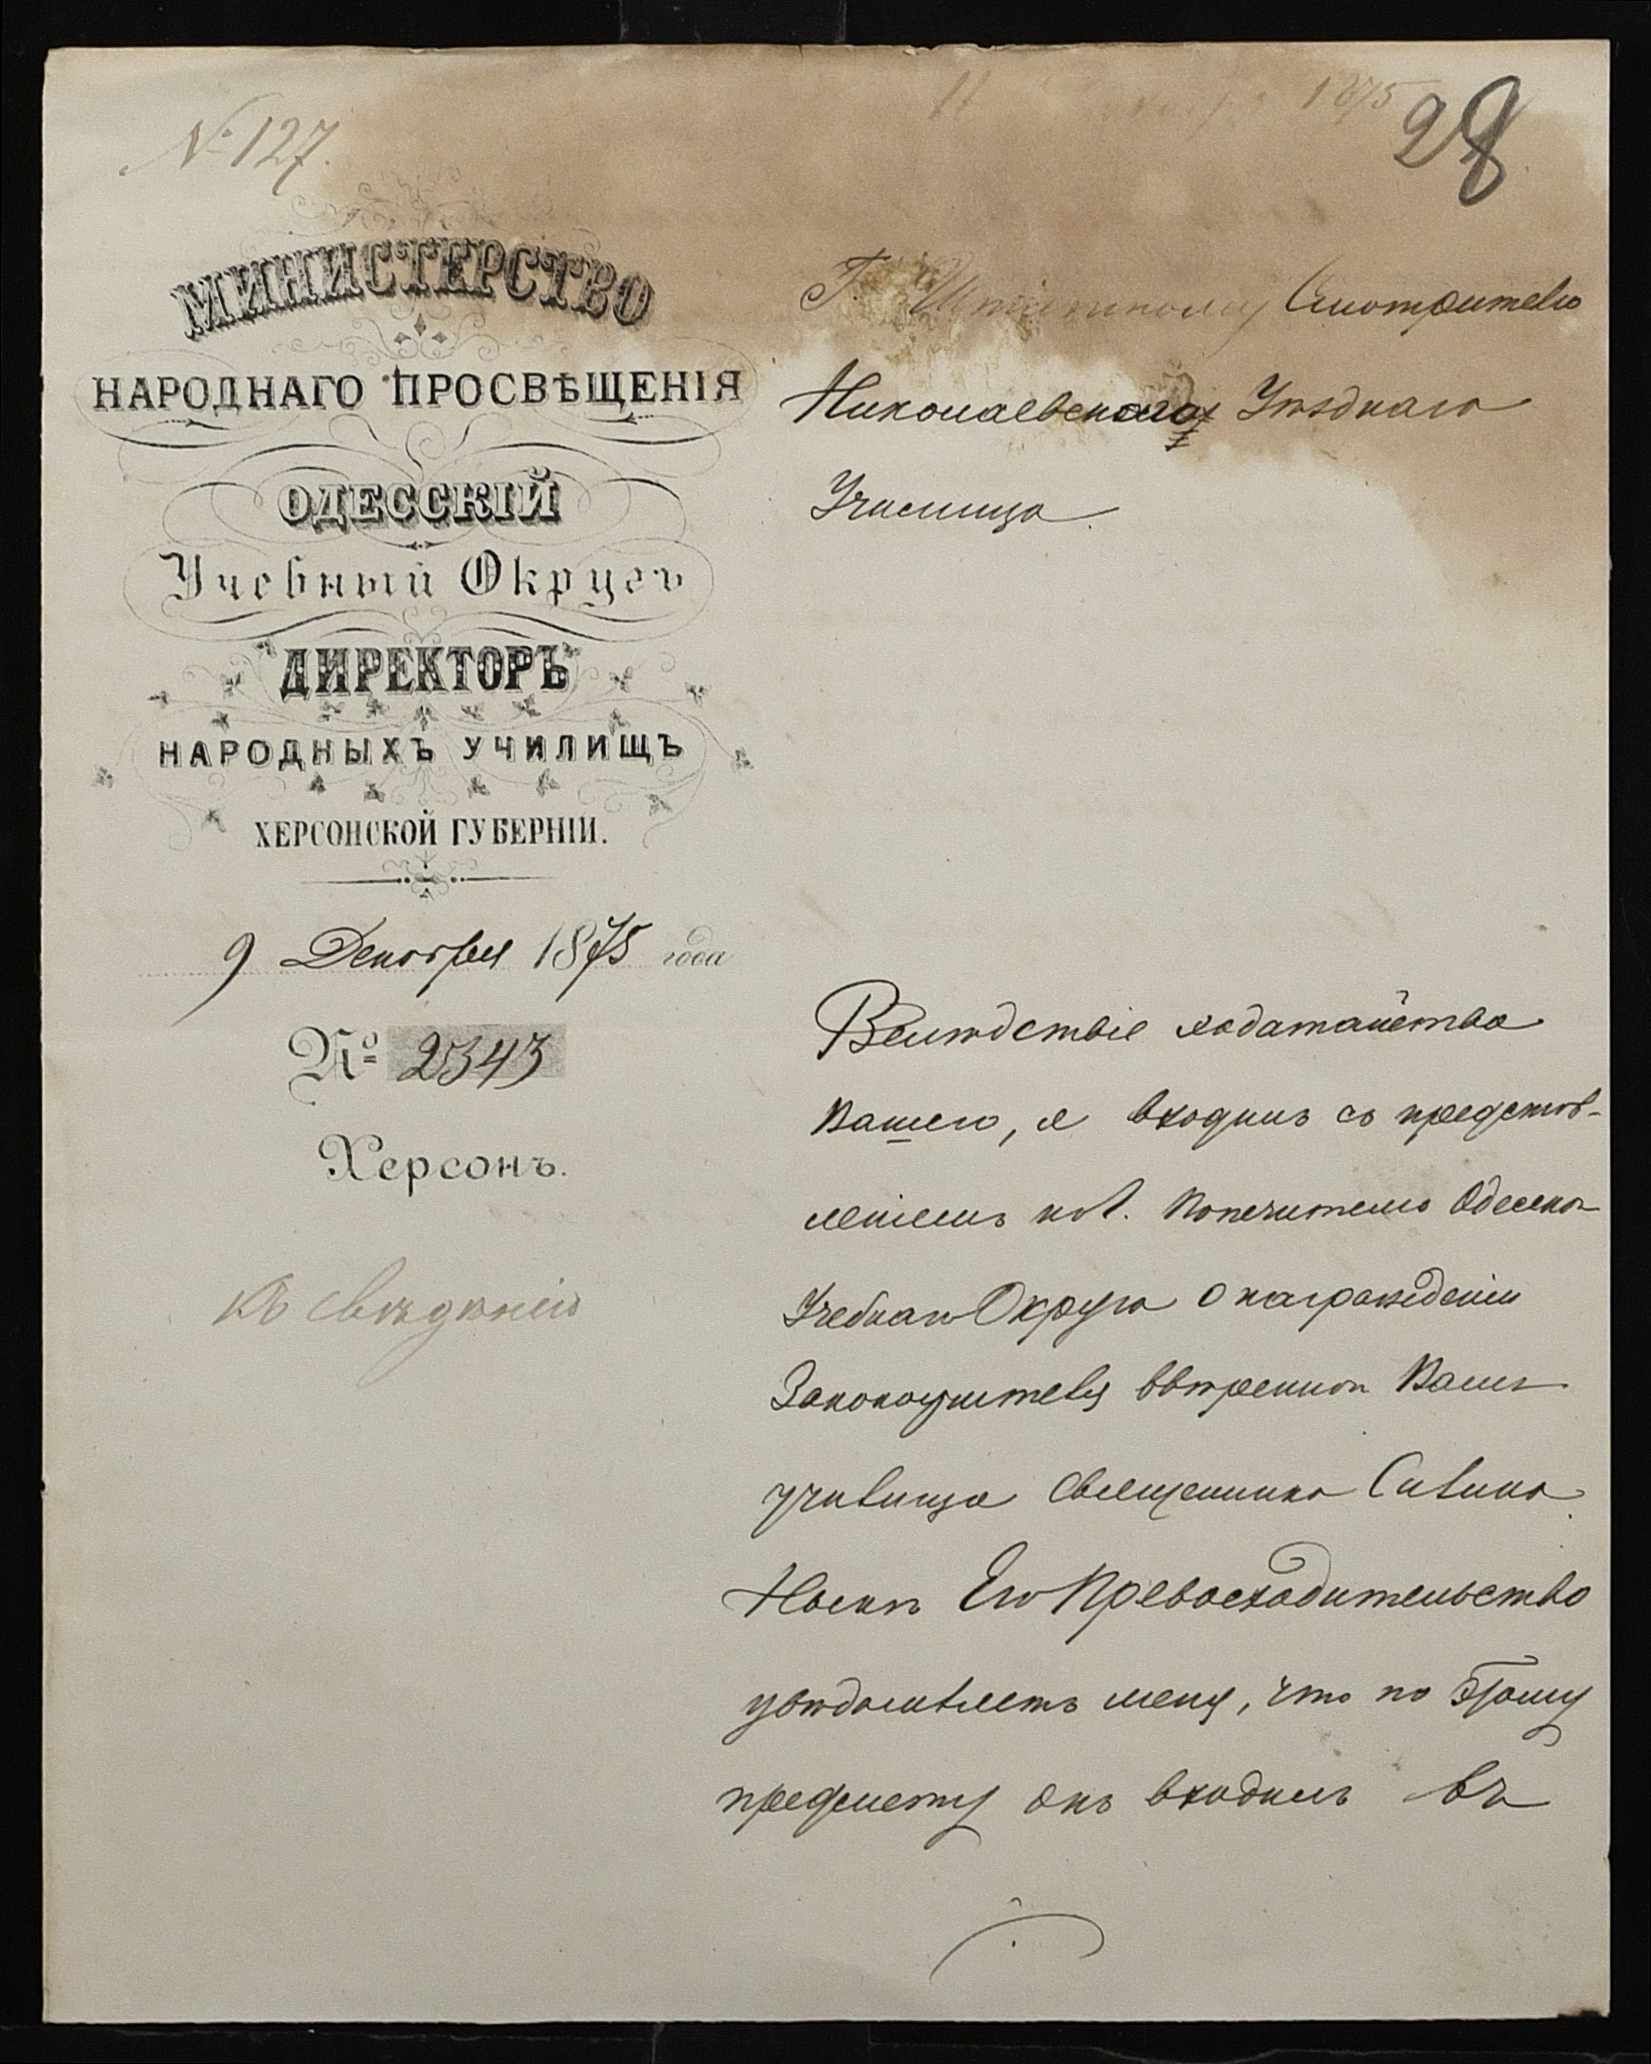 № 127.
1875
28
МИНИСТЕРСТВО
НАРОДНАГО ПРОСВѢЩЕНІЯ
ОДЕССКІЙ
Учебный Округъ
ДИРЕКТОРЪ
НАРОДНЫХЪ УЧИЛИЩЪ
ХЕРСОНСКОЙ ГУБЕРНІИ.
9 Декабря 1875 года
№ 2343
Херсонъ.
Къ свѣдѣнію
Г. Штатному Смотрителю
Николаевскаго Уѣзднаго
Училища.
Вслѣдствіе ходатайства
Вашего, я входилъ съ представ-
леніемъ къ Г. Попечителю Одесскаго
Учебнаго Округа о награжденіи
Законоучителя ввѣреннаго Вамъ
училища Священника
Нынѣ Его Превосходительство
увѣдомляетъ меня, что по этому
предмету онъ входилъ въ